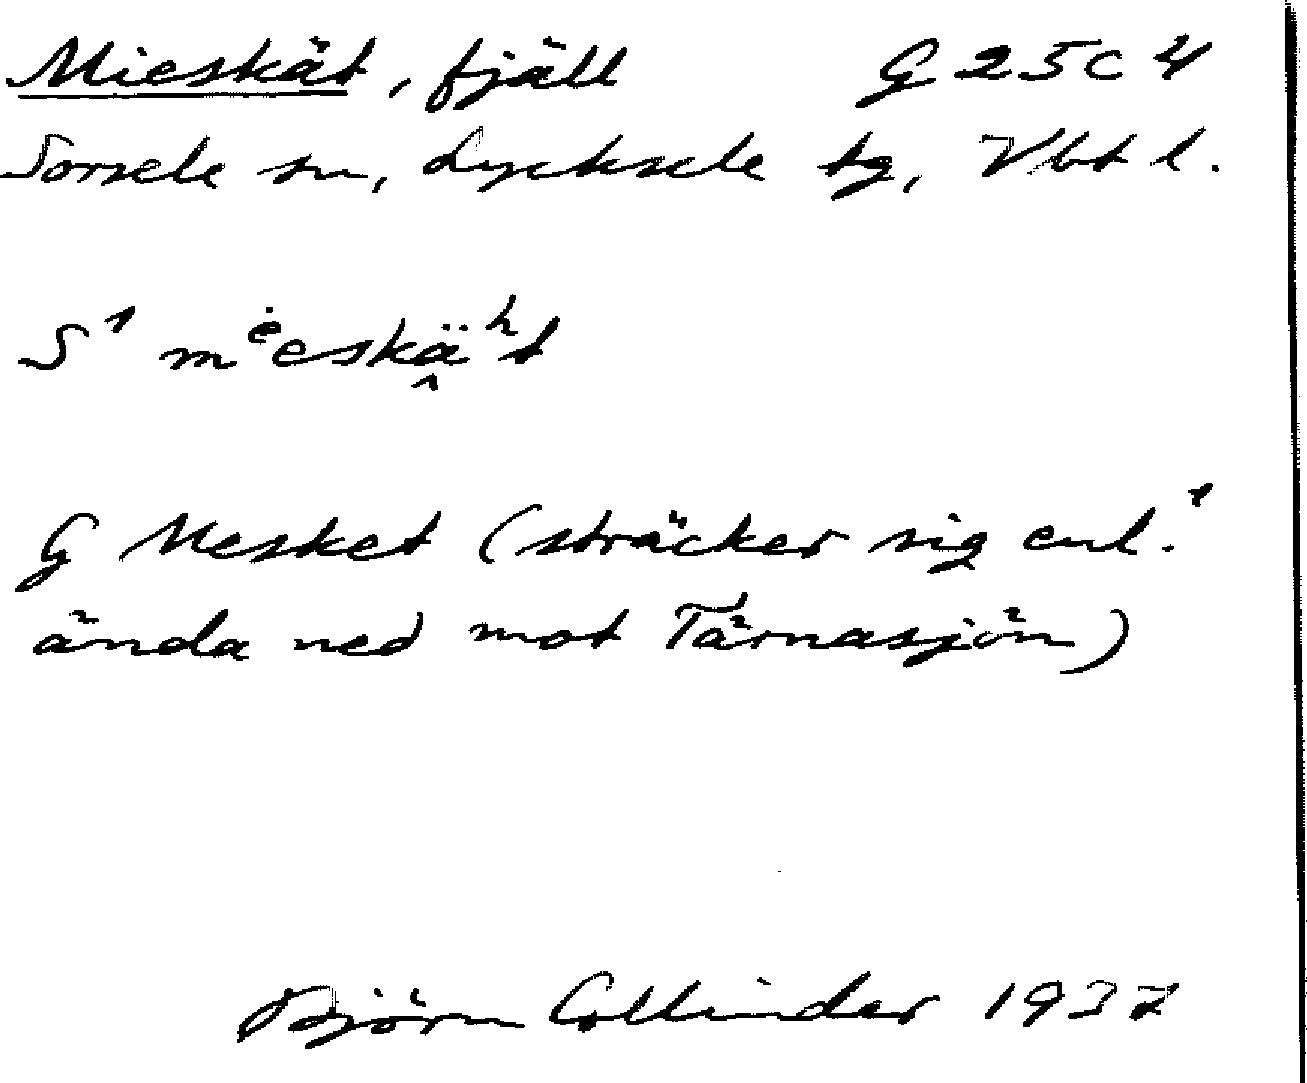 Mieskät, fjäll G 25 C 4
Sorsele sn, Lycksele tg, Vbt l.
S¹ mᵉ̇eskä̭ʰt
G Mesket (sträcker sig enl.¹
ända ned mot Tärnasjön)
Björn Collinder 1937